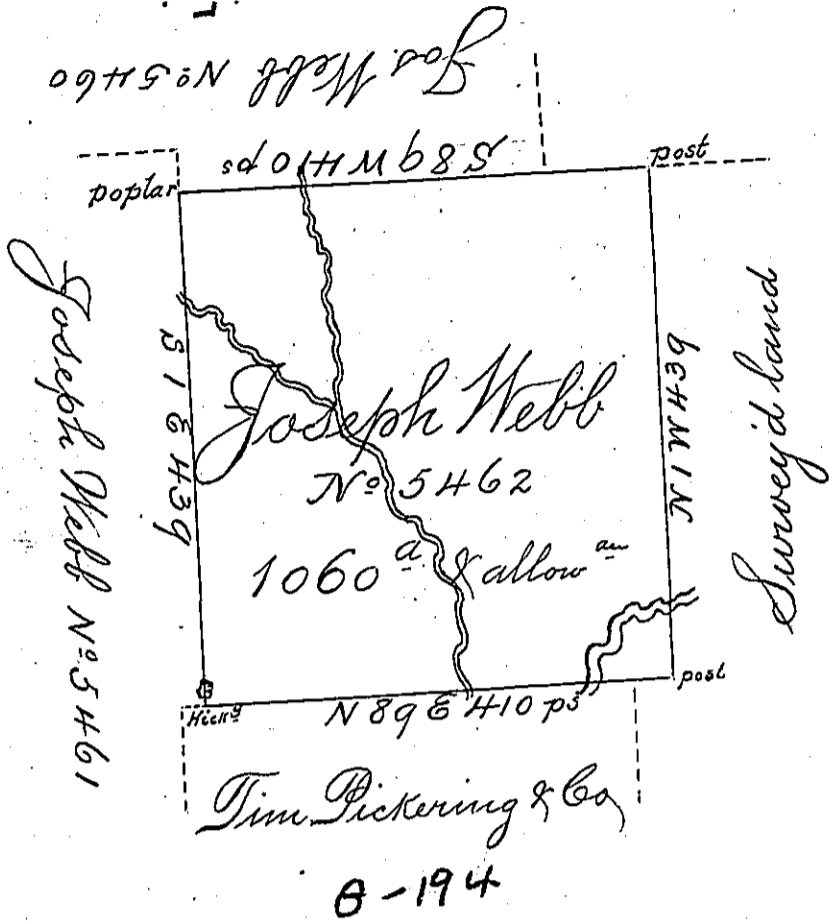 Jos. Webb No 5460
S 89 W 410 ps
poplar
post
Joseph Webb No 5461
S 1 E 439
Joseph Webb
No 5462
1060 a & allow an
N 1 W 439
Survey'd land
Hicky
N 89 E 410 ps
post
Tim Pickering & Co
194